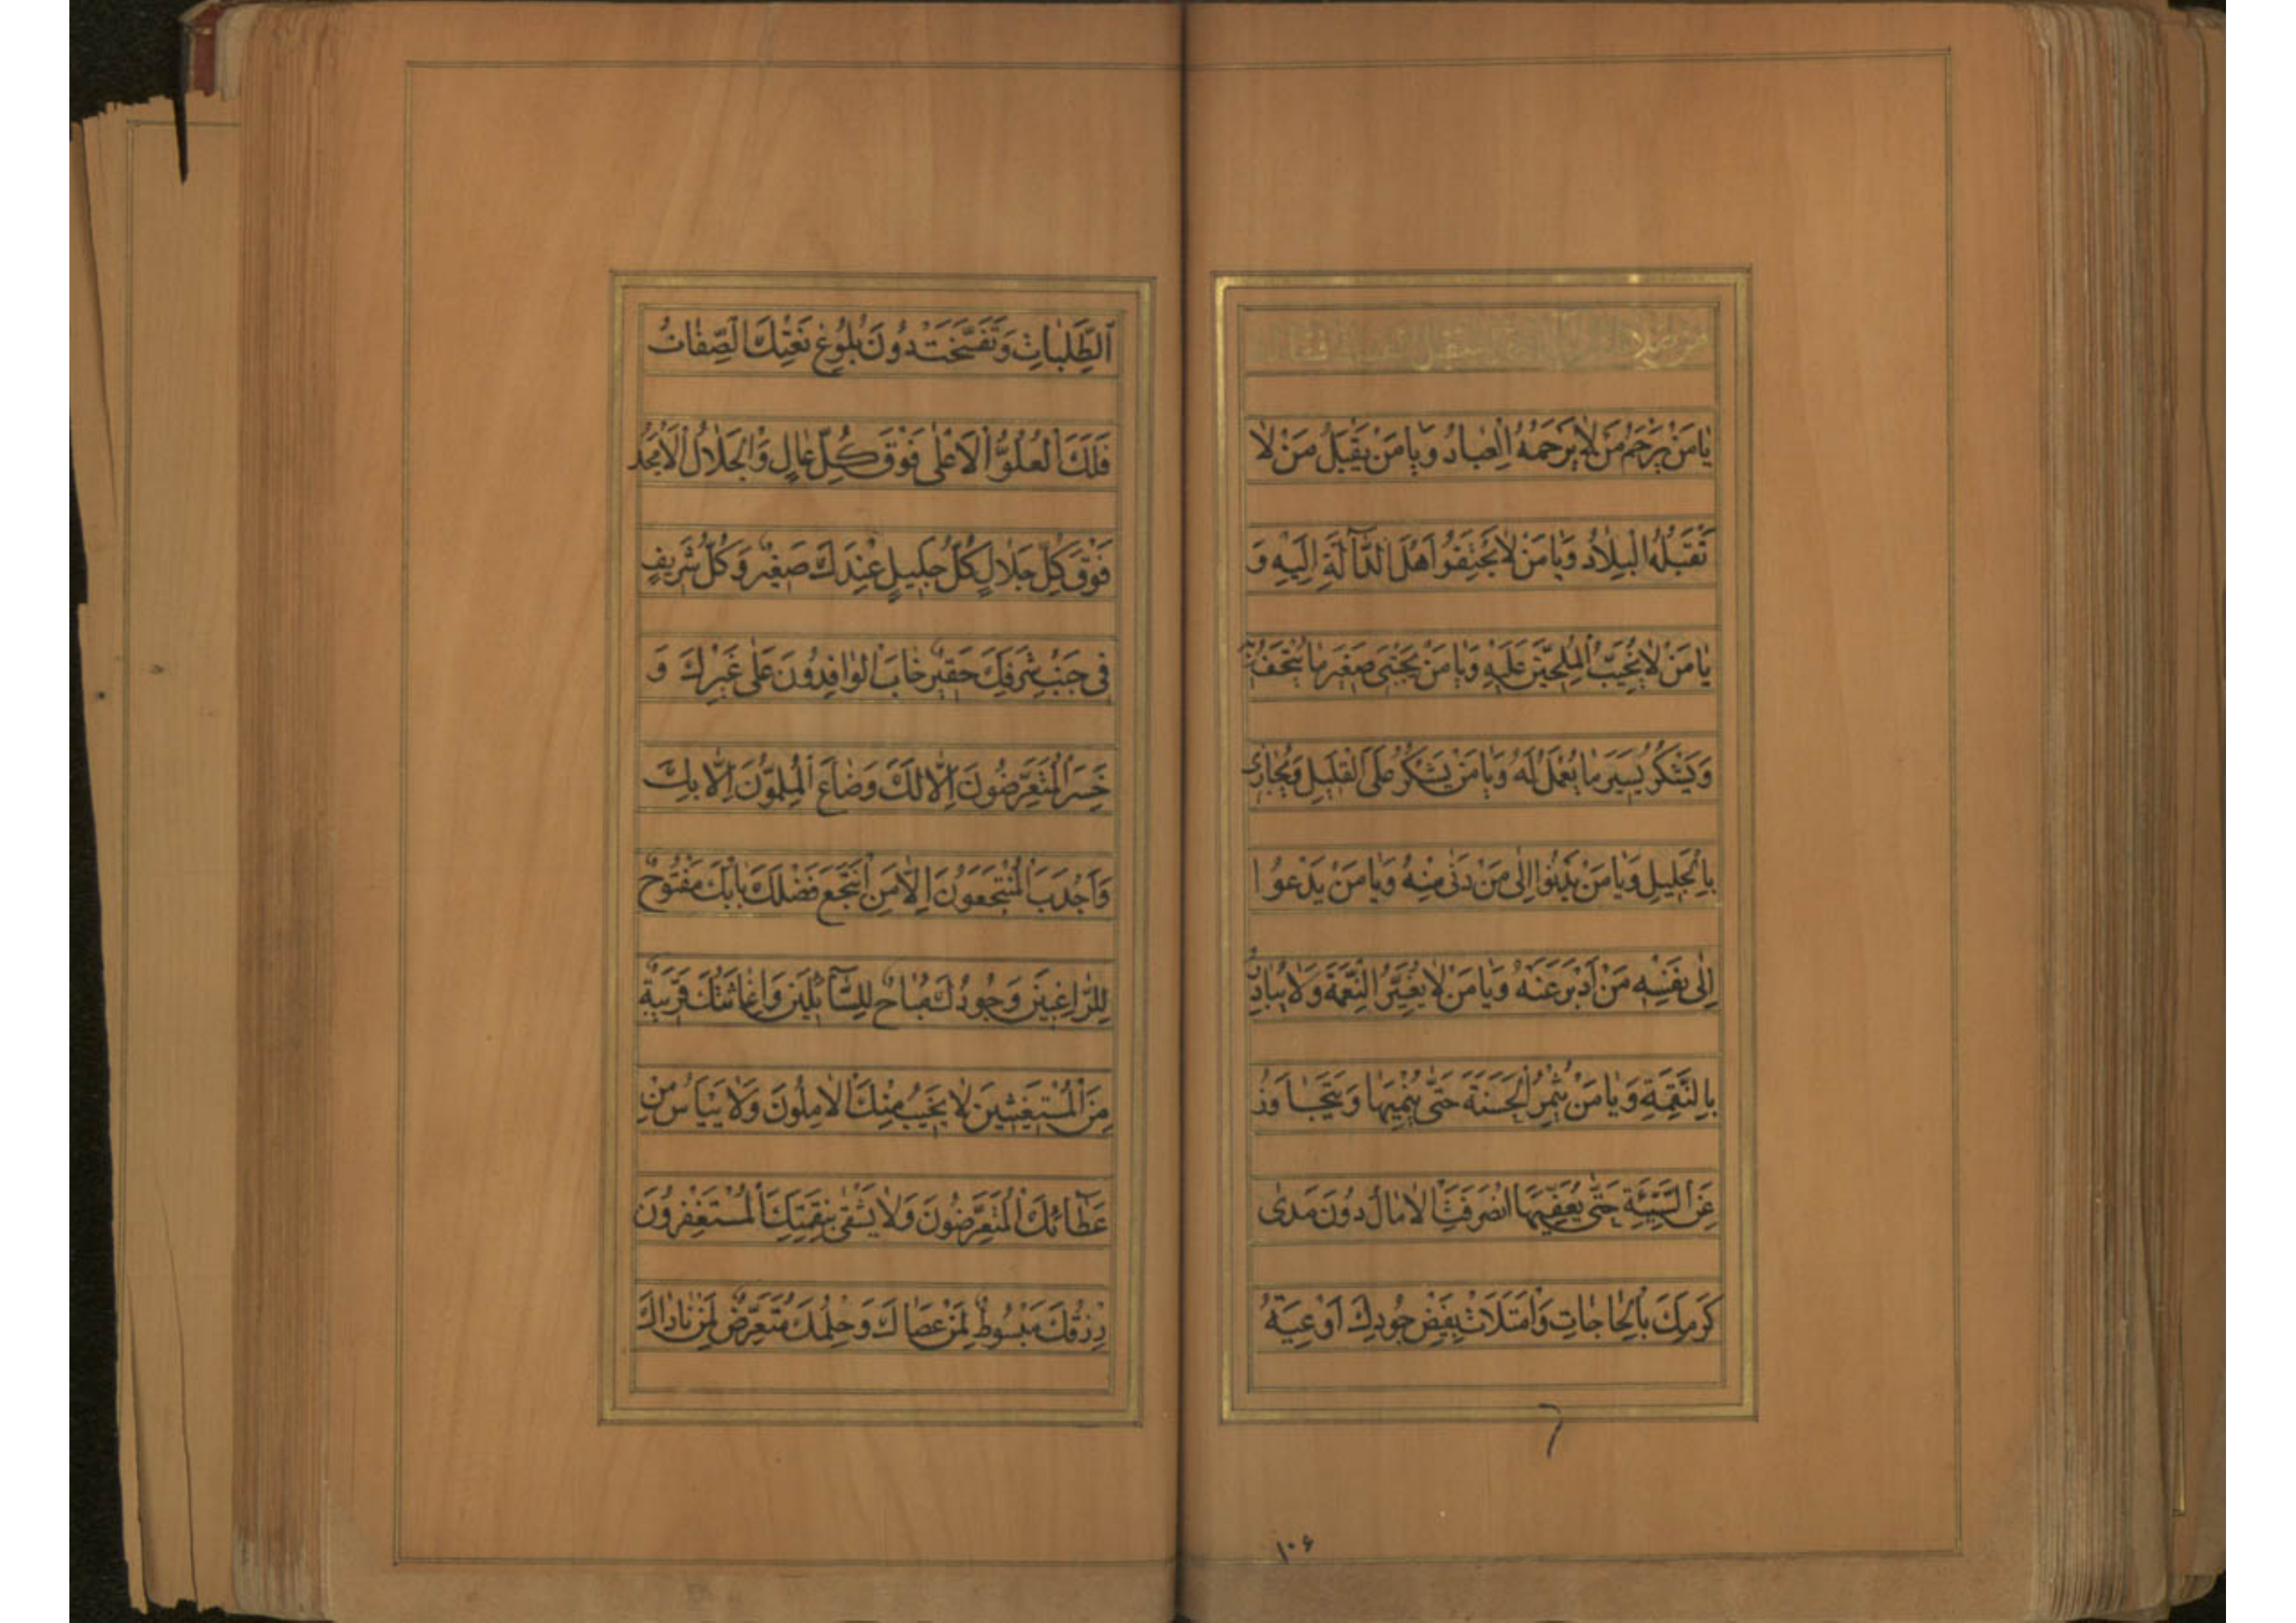 من صلاته قائما ثم استقبل القبلة فقال
يٰامَنْ يَرْحَمُ مَنْ لٰا يَرْحَمُهُ الْعِبٰادُ وَيٰا مَنْ يَقْبَلُ مَنْ لٰا
تَقْبَلُهُ الْبِلٰادُ وَيٰا مَنْ لٰا يَجْتَفِقُوا اَهْلَ الدّٰآلَّةِ اِلَيْهِ وَ
يٰا مَنْ لٰا يُخَيِّبُ الْمُلِحّينَ عَلَيْهِ وَيٰا مَنْ يَجْتَبى صَغيرَ مٰا يُتْحَفُ
وَيَشْكُرُ يَسيرَ مٰا يُعْمَلُ لَهُ وَيٰا مَنْ يَشْكُرُ عَلَى الْقَليلِ وَيُجٰازى
بِالْجَليلِ وَيٰا مَنْ يَدْنُوا اِلٰى مَنْ دَنٰى مِنْهُ وَيٰا مَنْ يَدْعُوا
اِلٰى نَفْسِهِ مَنْ اَدْبَرَ عَنْهُ وَيٰا مَنْ لٰا يُغَيِّرُ النِّعْمَةَ وَلٰا يُبٰادِرُ
بِالنَّقِمَةِ وَيٰا مَنْ يُثْمِرُ الْحَسَنَةَ حَتّٰى يُنْمِيَهٰا وَيَتَجٰاوَزُ
عَنِ السَّيِّئَةِ حَتّٰى يُعَفِّيَهٰا انْصَرَفَتِ الْاٰمٰالُ دُونَ مَدٰى
كَرَمِكَ بِالْحٰاجٰاتِ وَامْتَلَاَتْ بِفَيْضِ جُودِكَ اَوْعِيَةُ
۱۰۶
الطَّلِبٰاتِ وَتَفَسَّخَتْ دُونَ بُلُوغِ نَعْتِكَ الصِّفٰاتُ
فَلَكَ الْعُلُوُّ الْاَعْلٰى فَوْقَ كُلِّ عٰالٍ وَالْجَلٰالُ الْاَمْجَدُ
فَوْقَ كُلِّ جَلٰالٍ كُلُّ جَليلٍ عِنْدَكَ صَغيرٌ وَكُلُّ شَريفٍ
فى جَنْبِ شَرَفِكَ حَقيرٌ خٰابَ الْوٰافِدُونَ عَلٰى غَيْرِكَ وَ
خَسِرَ الْمُتَعَرِّضُونَ اِلّٰا لَكَ وَضٰاعَ الْمُلِمُّونَ اِلّٰا بِكَ
وَاَجْدَبَ الْمُنْتَجِعُونَ اِلّٰا مَنِ انْتَجَعَ فَضْلَكَ بٰابُكَ مَفْتُوحٌ
لِلرّٰاغِبينَ وَجُودُكَ مُبٰاحٌ لِلسّٰآئِلينَ وَاِغٰاثَتُكَ قَريبَةٌ
مِنَ الْمُسْتَغيثينَ لٰا يَخيبُ مِنْكَ الْاٰمِلُونَ وَلٰا يَيْاَسُ مِنْ
عَطٰائِكَ الْمُتَعَرِّضُونَ وَلٰا يَشْقٰى بِنَقِمَتِكَ الْمُسْتَغْفِرُونَ
رِزْقُكَ مَبْسُوطٌ لِمَنْ عَصٰاكَ وَحِلْمُكَ مُتَعَرِّضٌ لِمَنْ نٰاوٰاكَ